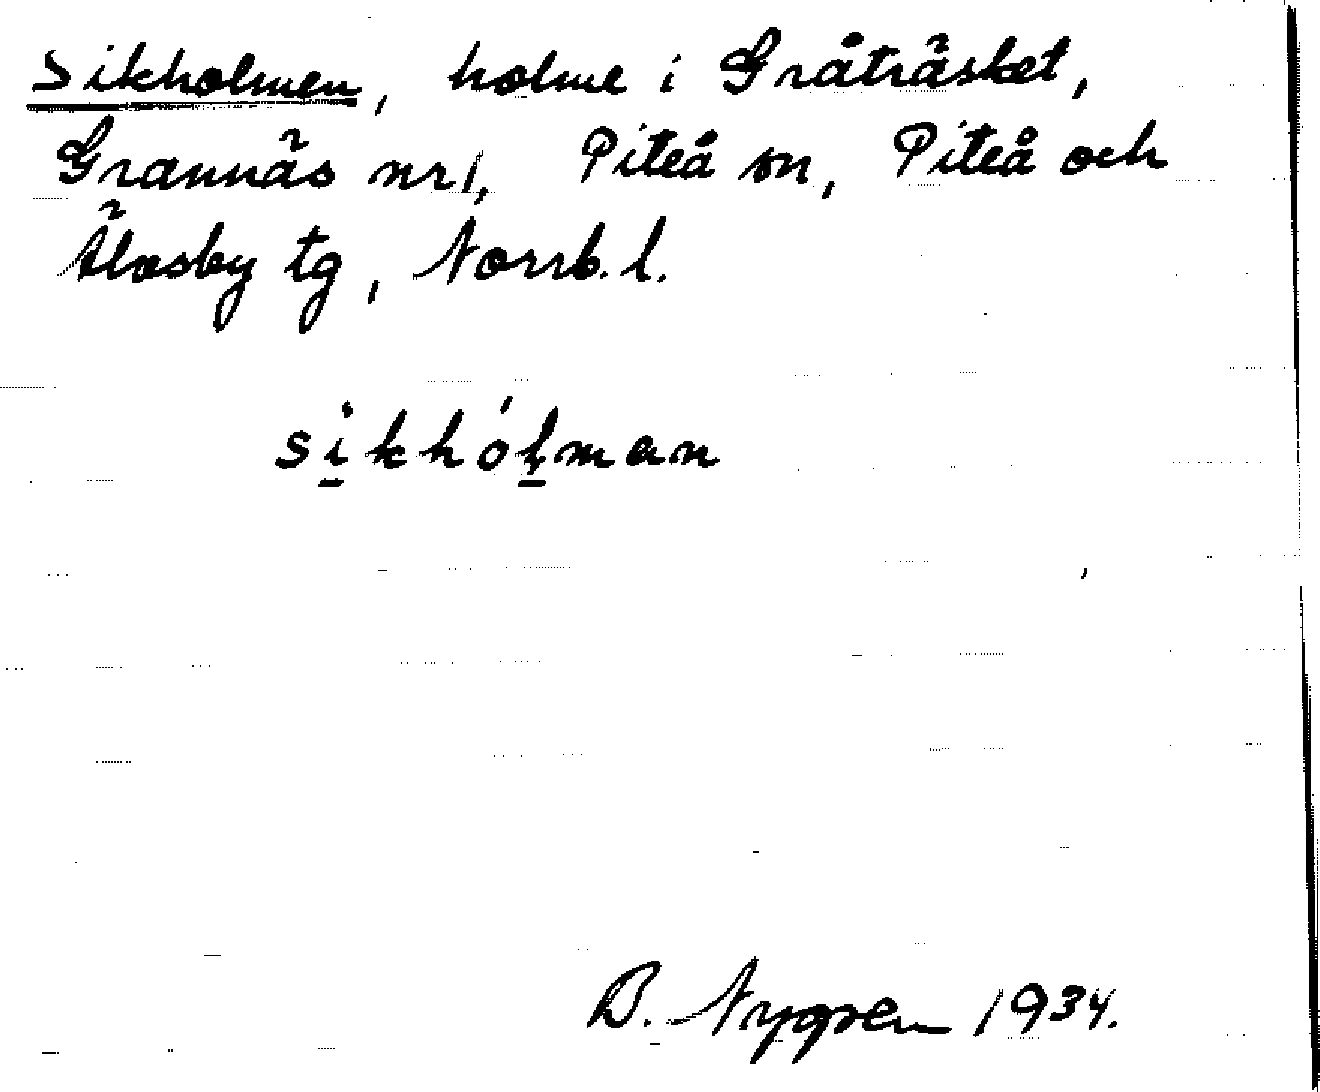 Sikholmen, holme i Gråträsket,
Grannäs nr 1, Piteå sn, Piteå och
Älvsby tg, Norrb. l.
si̲khól̲man
B. Nygren 1934.